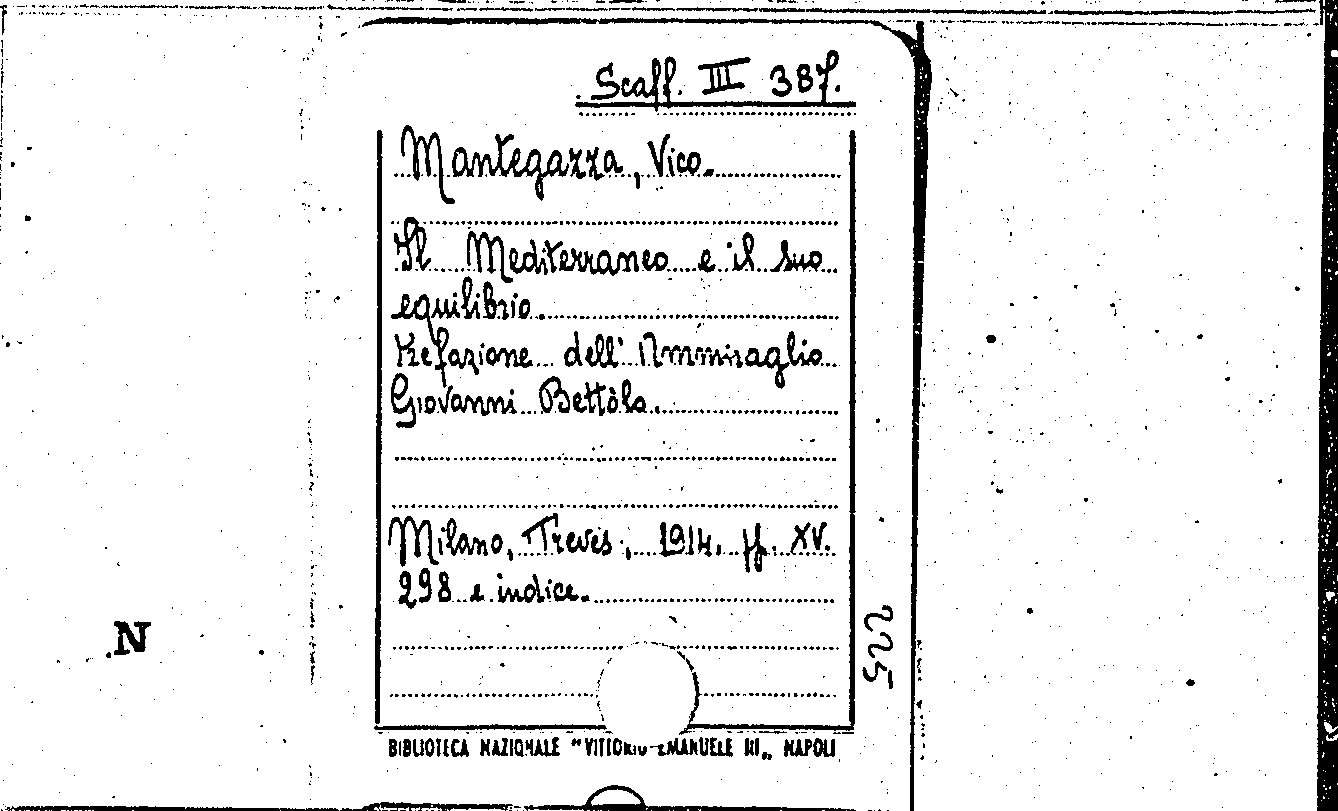 Scaff. III 387.
Mantegazza, Vico.
Il Mediterraneo e il suo
equilibrio.
Prefazione dell'Ammiraglio
Giovanni Bettòlo.
Milano, Treves, 1914. pp. XV.
298 e indice.
N
522
BIBLIOTECA NAZIONALE "VITTORIO EMANUELE III„ NAPOLI